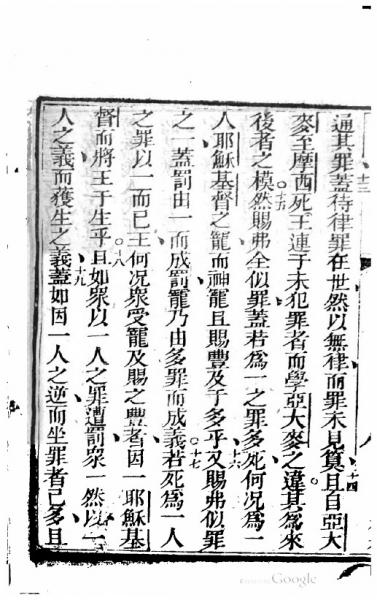 通其罪十三蓋待律罪在世然以無律而罪未見算十四且自亞大
麥至摩西死王連于未犯罪者而學亞大麥之違其爲來
後者之模十五然賜弗全似罪蓋若爲一之罪多死何况爲一
人耶穌基督之寵而神寵且賜豐及于多乎十六又賜弗似罪
之一蓋罰由一而成罰寵乃由多罪而成義十七若死爲一人
之罪以一而已王何况衆受寵及賜之豐者因一耶穌基
督而將王于生乎十八且如衆以一人之罪遭罰衆一然以一
人之義而獲生之義十九蓋如因一人之逆而坐罪者已多且
Google